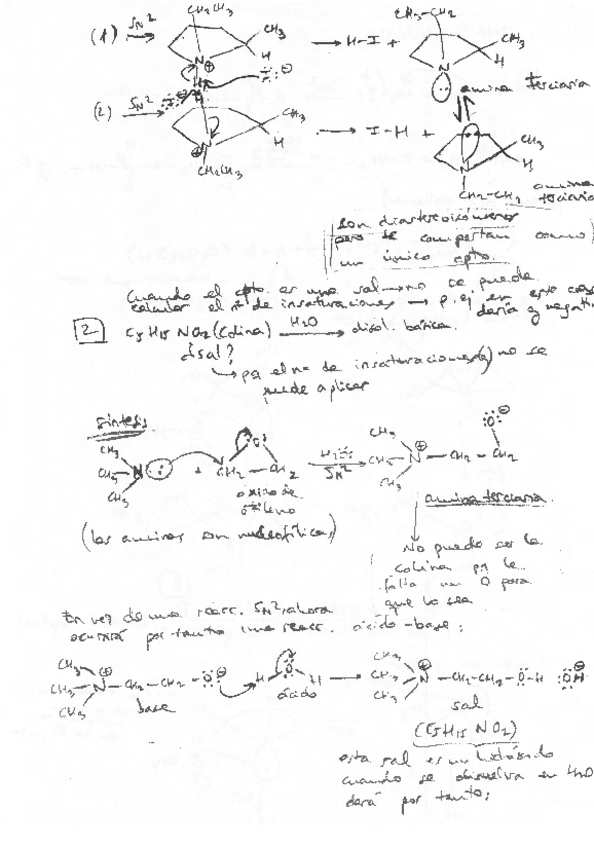 CH₂CH₃ CH₃-CH₂
(1) SN² CH₃ H N⊕ H I⊖ → H-I + CH₃ H N
amina terciaria
(2) SN² I⊖ H CH₃ H N⊕ CH₂CH₃ → I-H + CH₃ H N
CH₂-CH₃ amina terciaria
Son diastereoisómeros
pero se comportan como
un único cpto.
Cuando el cpto. es una sal → no se puede
calcular el nº de insaturaciones → p. ej en este caso
daría y negati
2 C5H15NO2 (Colina) H2O → disol. básica.
¿sal?
→ pq el nº de insaturaciones no se
puede aplicar
síntesis
CH3 CH3 CH3 N + CH2 - CH2 O H2O SN2 CH3 CH3 CH3 N⊕ - CH2 - CH2 O⊖
óxido de
etileno
amina terciaria
(las aminas son nucleofílicas)
No puede ser la
colina pq le
falta un O para
que lo sea
En vez de una reacc. SN², ahora
ocurrirá por tanto una reacc. ácido-base:
CH3 CH3 CH3 N⊕ - CH2 - CH2 - O⊖ H O H → CH3 CH3 CH3 N⊕ - CH2-CH2-O-H OH⊖
base ácido sal
(C5H15NO2)
esta sal es un hidróxido
cuando se disuelva en H2O
dará por tanto: